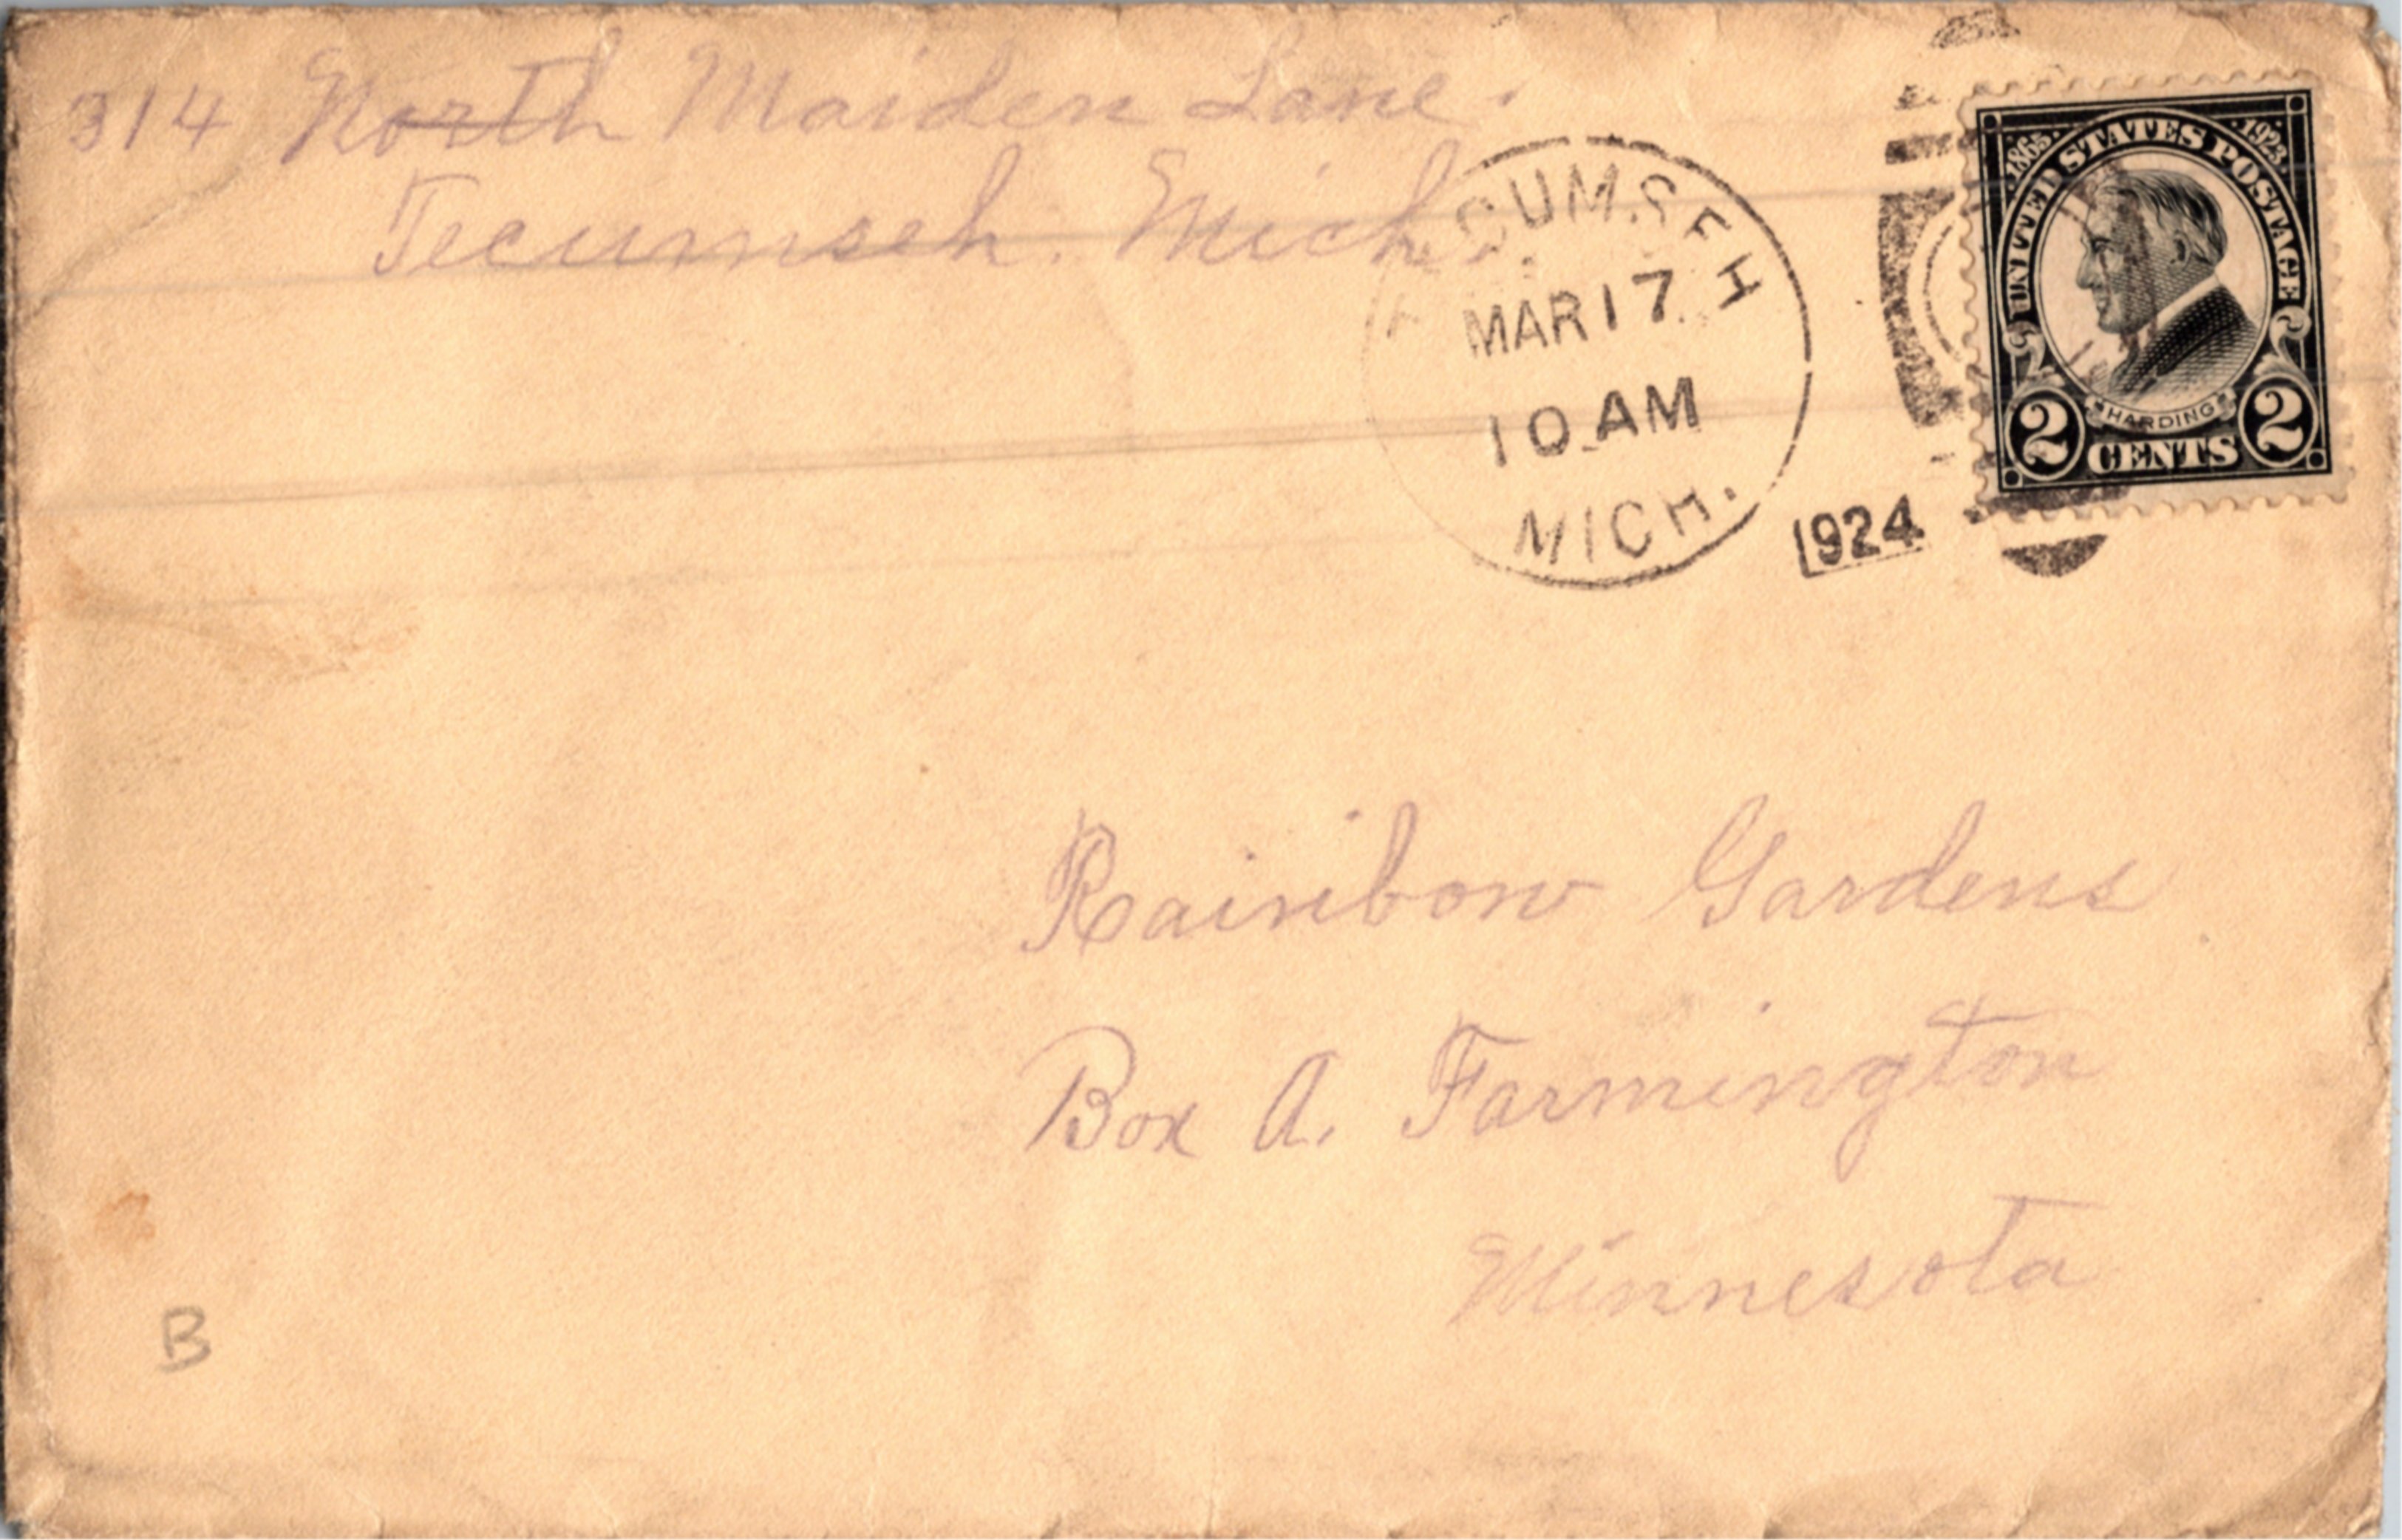 314 North Maiden Lane.
Tecumseh. Mich.
TECUMSEH
MAR 17
10 AM
MICH.
1924
1865 UNITED STATES POSTAGE 1923
HARDING
2 CENTS 2
Rainbow Gardens
Box A. Farmington
Minnesota
B